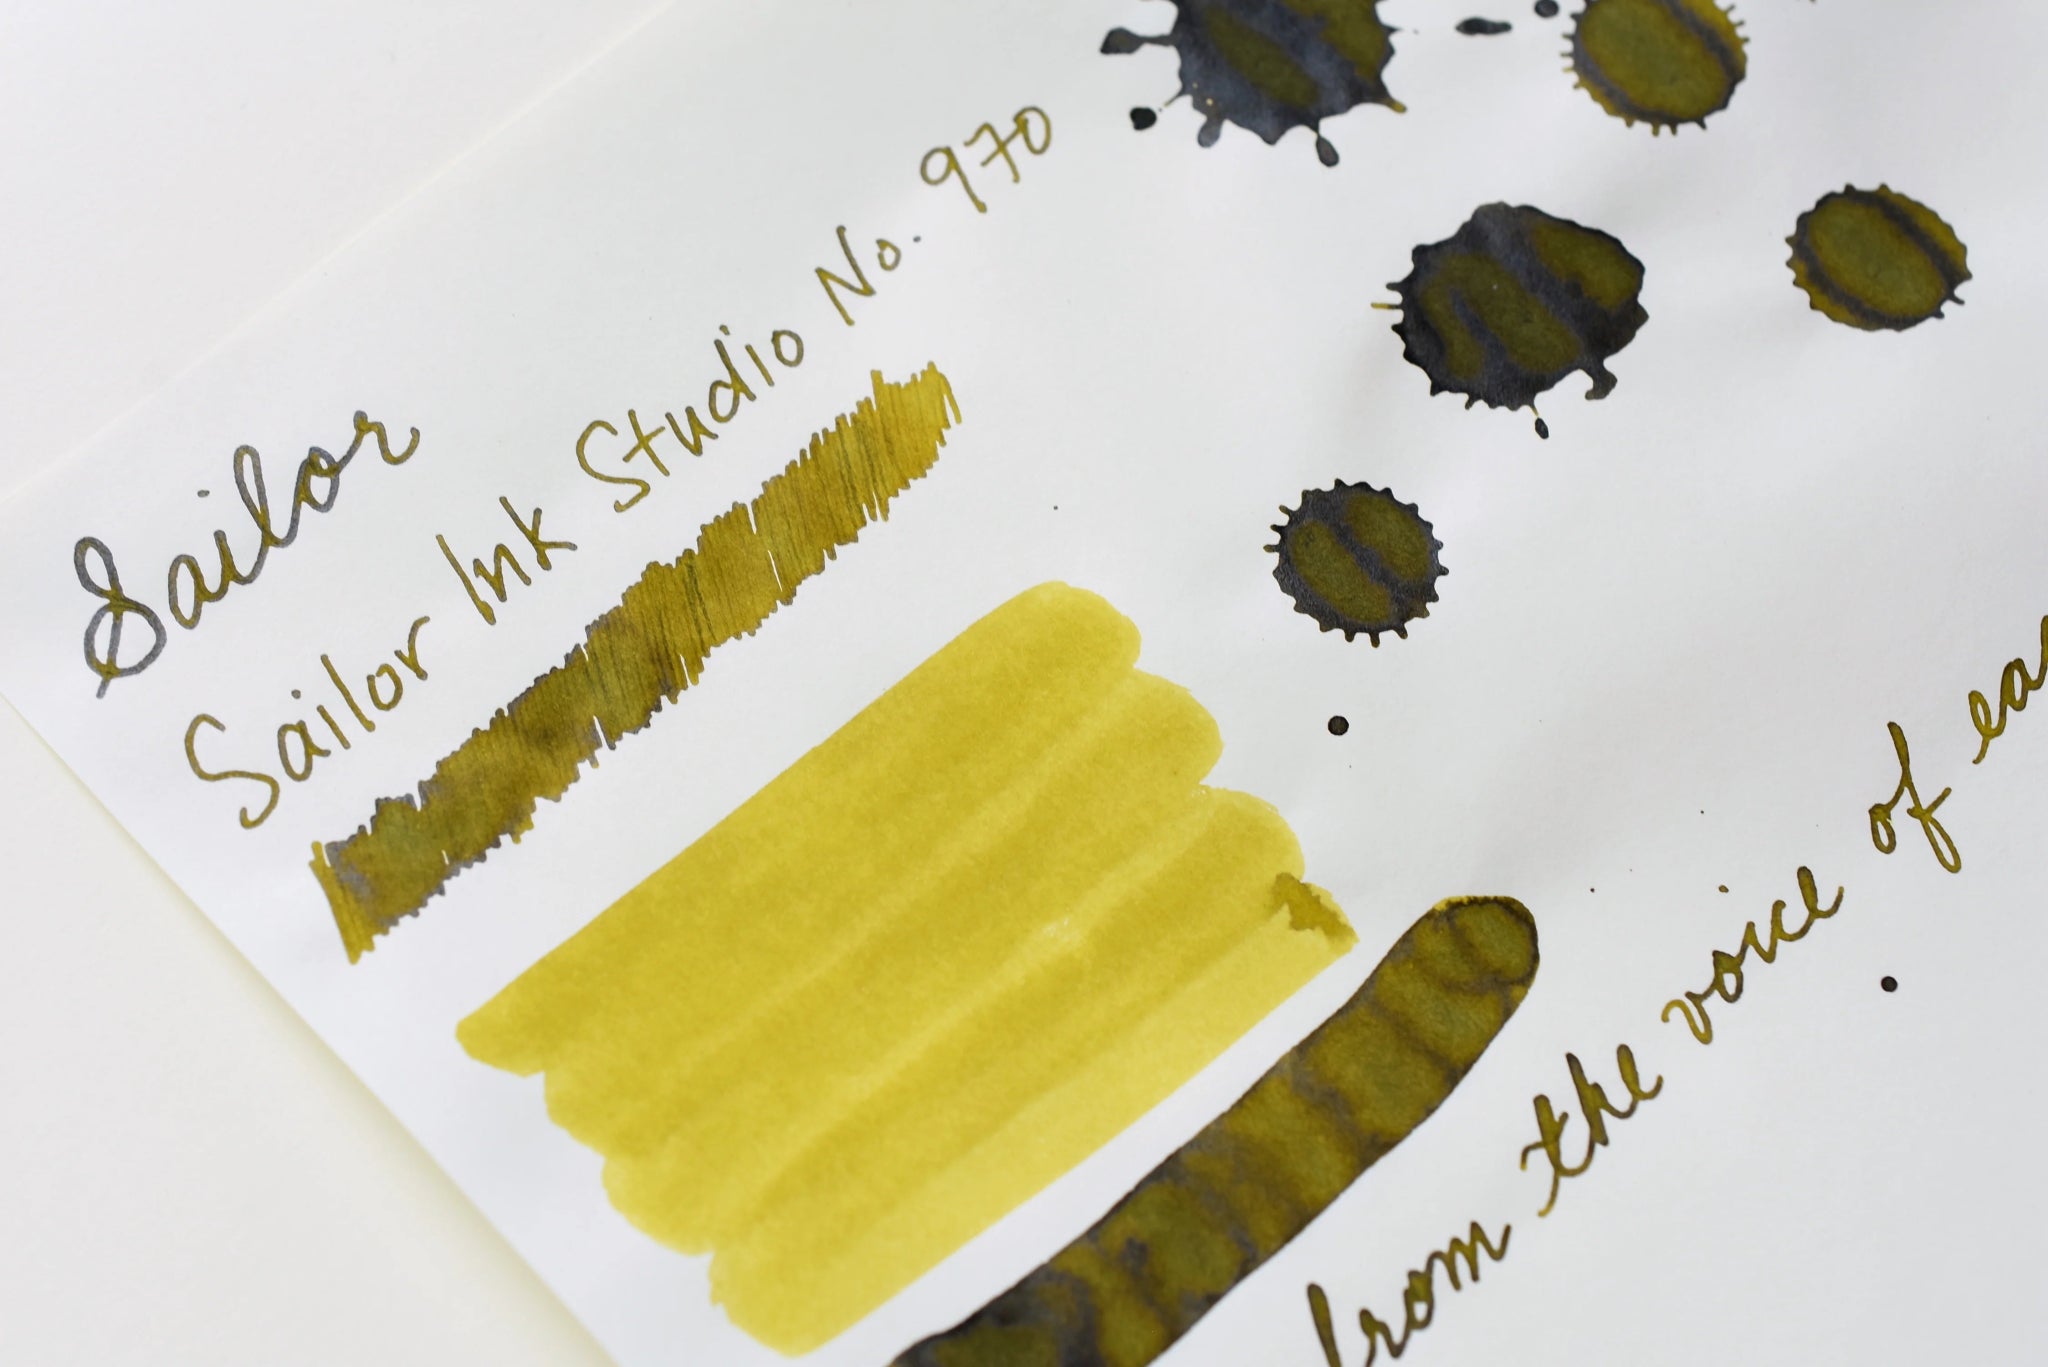 Sailor
Sailor Ink Studio No. 970
from the voice of